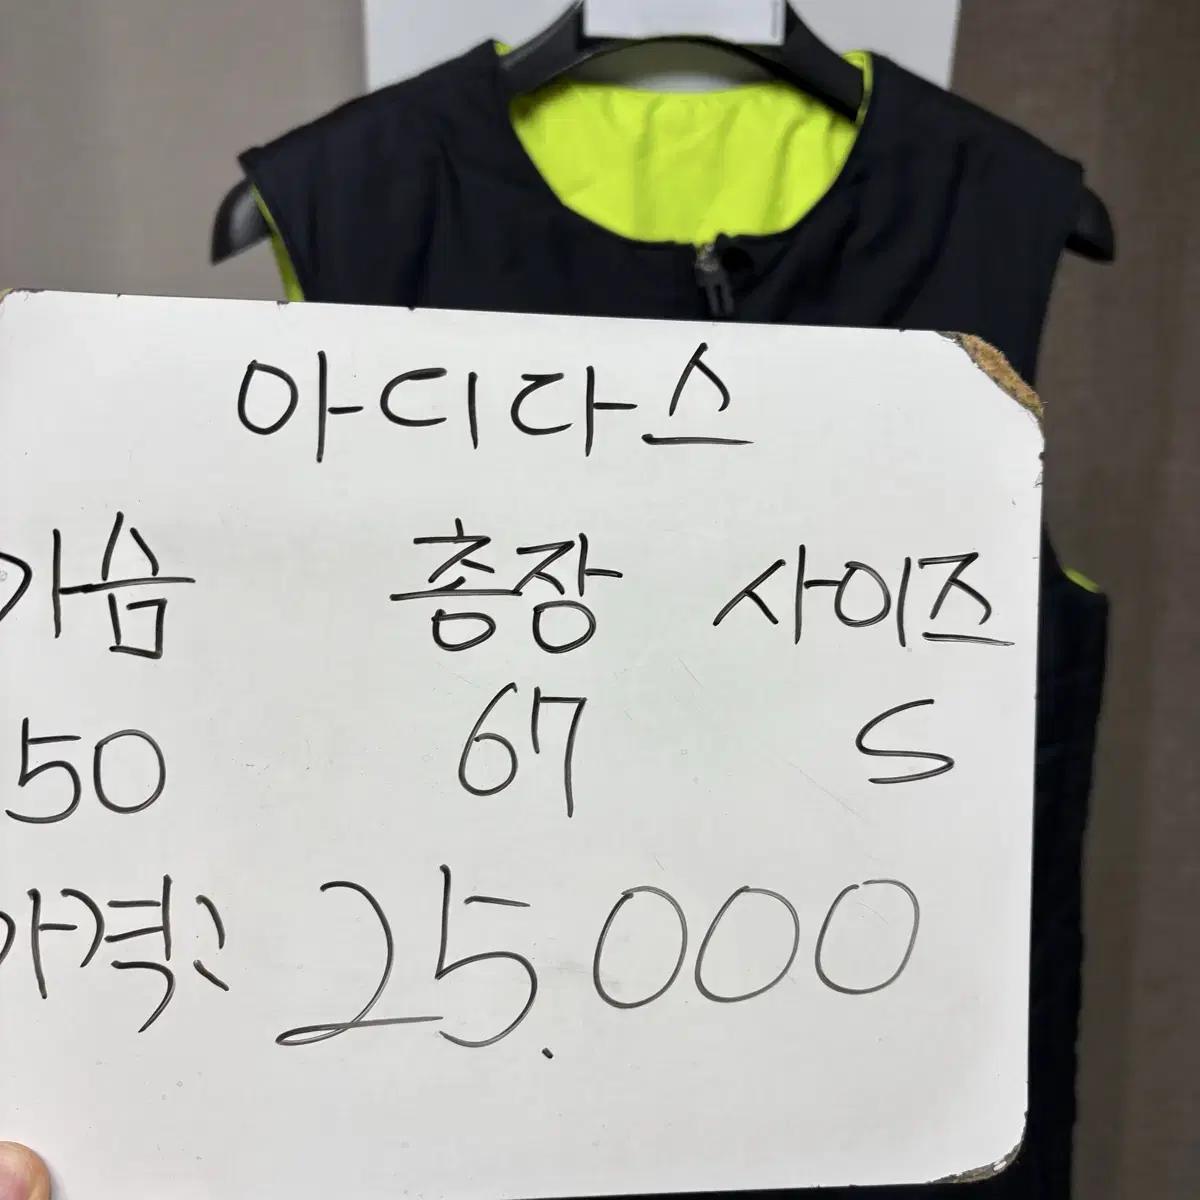 아디다스
가슴 총장 사이즈
50 67 S
가격: 25.000